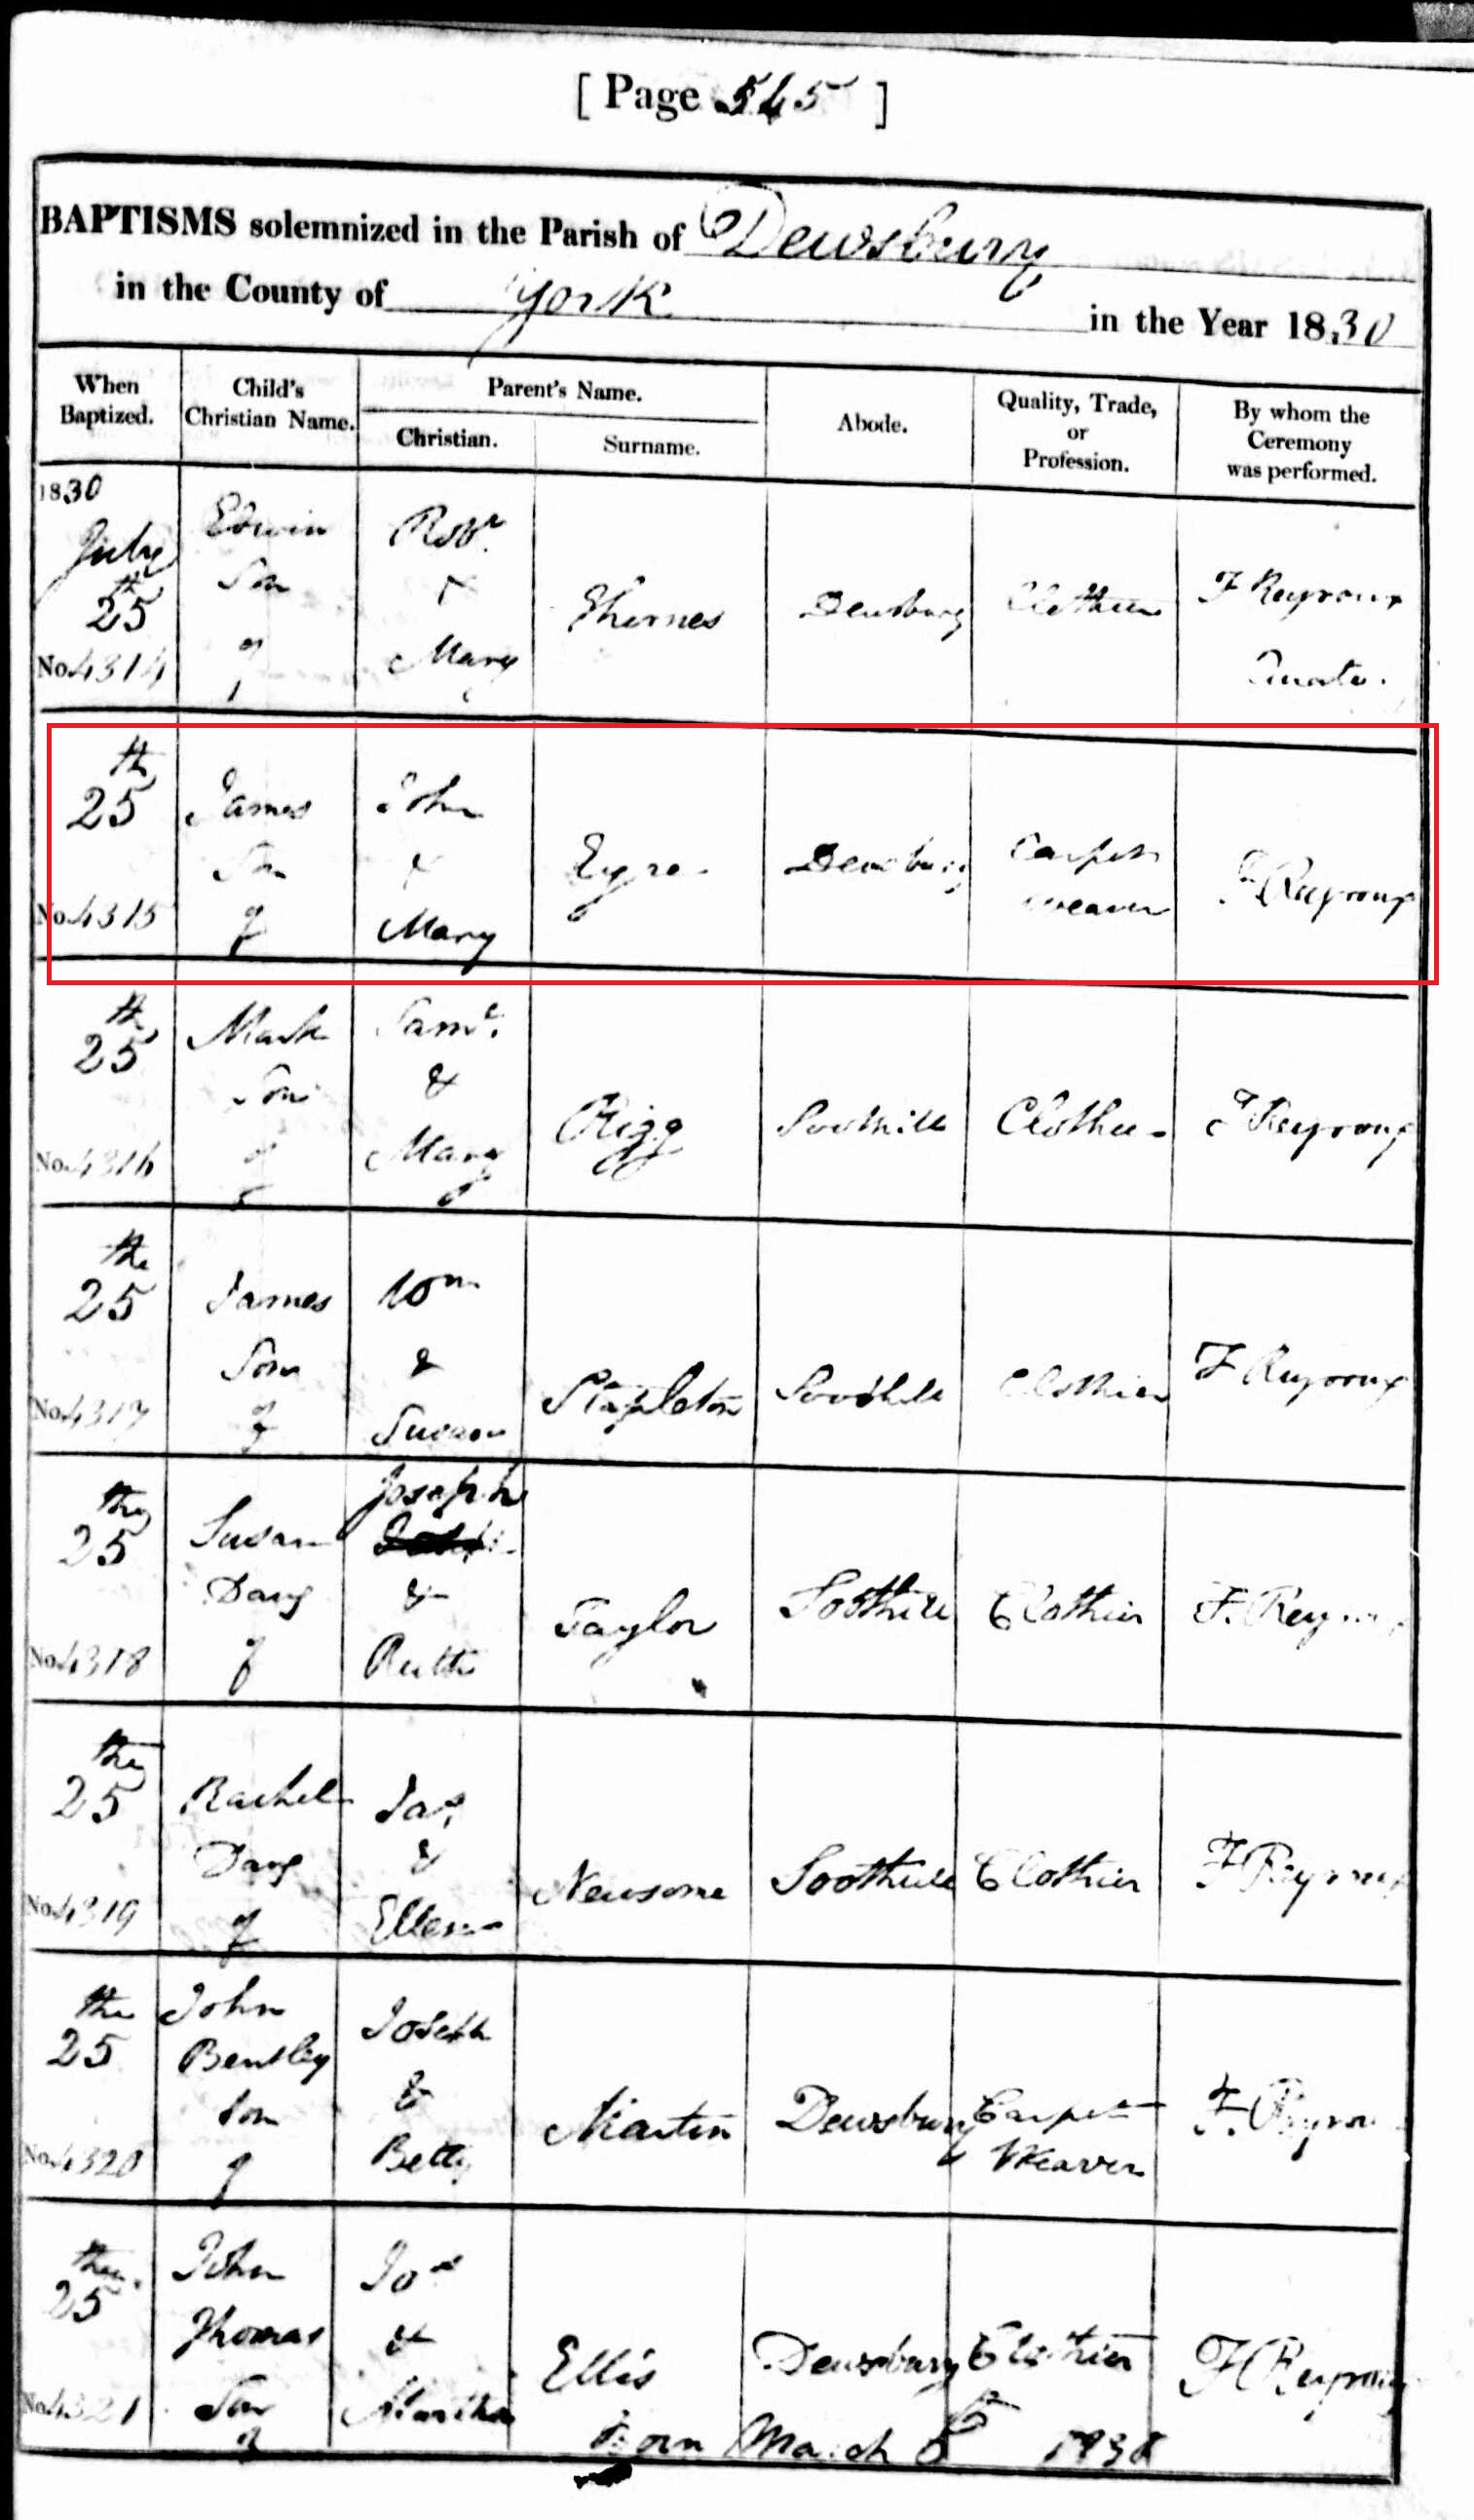 [ Page 545 ]
BAPTISMS solemnized in the Parish of Dewsbury
in the County of York in the Year 1830
When Baptized.
Child's Christian Name.
Parent's Name.
Christian.
Surname.
Abode.
Quality, Trade, or Profession.
By whom the Ceremony was performed.
1830
July
25th
No. 4314
Edwin
Son
of
Robt
&
Mary
Thornes
Dewsbury
Clothier
F Reyroux
Curate.
25th
No. 4315
James
Son
of
John
&
Mary
Eyre
Dewsbury
Carpet
weaver
F Reyroux
25th
No. 4316
Mark
Son
of
Saml.
&
Mary
Rigg
Soothill
Clothier
F Reyroux
the
25
No. 4317
James
Son
of
Wm
&
Susan
Stapleton
Soothill
Clothier
F Reyroux
the
25
No. 4318
Susan
Daug
of
Joseph
&
Ruth
Taylor
Soothill
Clothier
F. Reyroux
the
25
No. 4319
Rachel
Daug
of
Jas.
&
Ellen
Newsome
Soothill
Clothier
F Reyroux
the
25
No. 4320
John
Bentley
Son
of
Joseph
&
Betty
Martin
Dewsbury
Carpet
Weaver
F. Reyroux
the
25
No. 4321
John
Thomas
Son
of
Jos
&
Martha
Ellis
Dewsbury
Clothier
F Reyroux
Born March